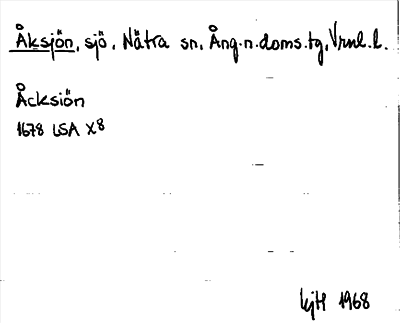 Åksjön, sjö, Nätra sn, Ång.n.doms.tg, Vrnl. l.
Åcksiön
1678 LSA X8
kjH 1968